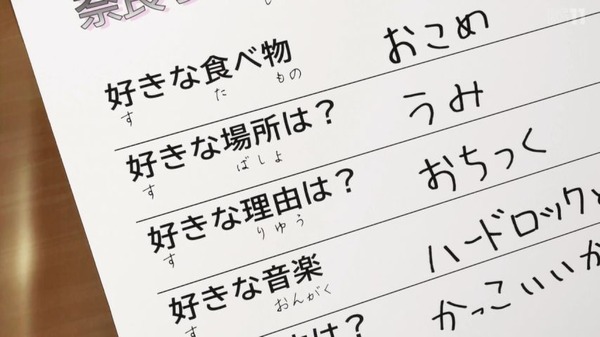 奈良
好きな食べ物 おこめ
す た もの
好きな場所は？ うみ
す ばしょ
好きな理由は？ おちつく
す りゆう
好きな音楽 ハードロック
す おんがく
は？ かっこいいか